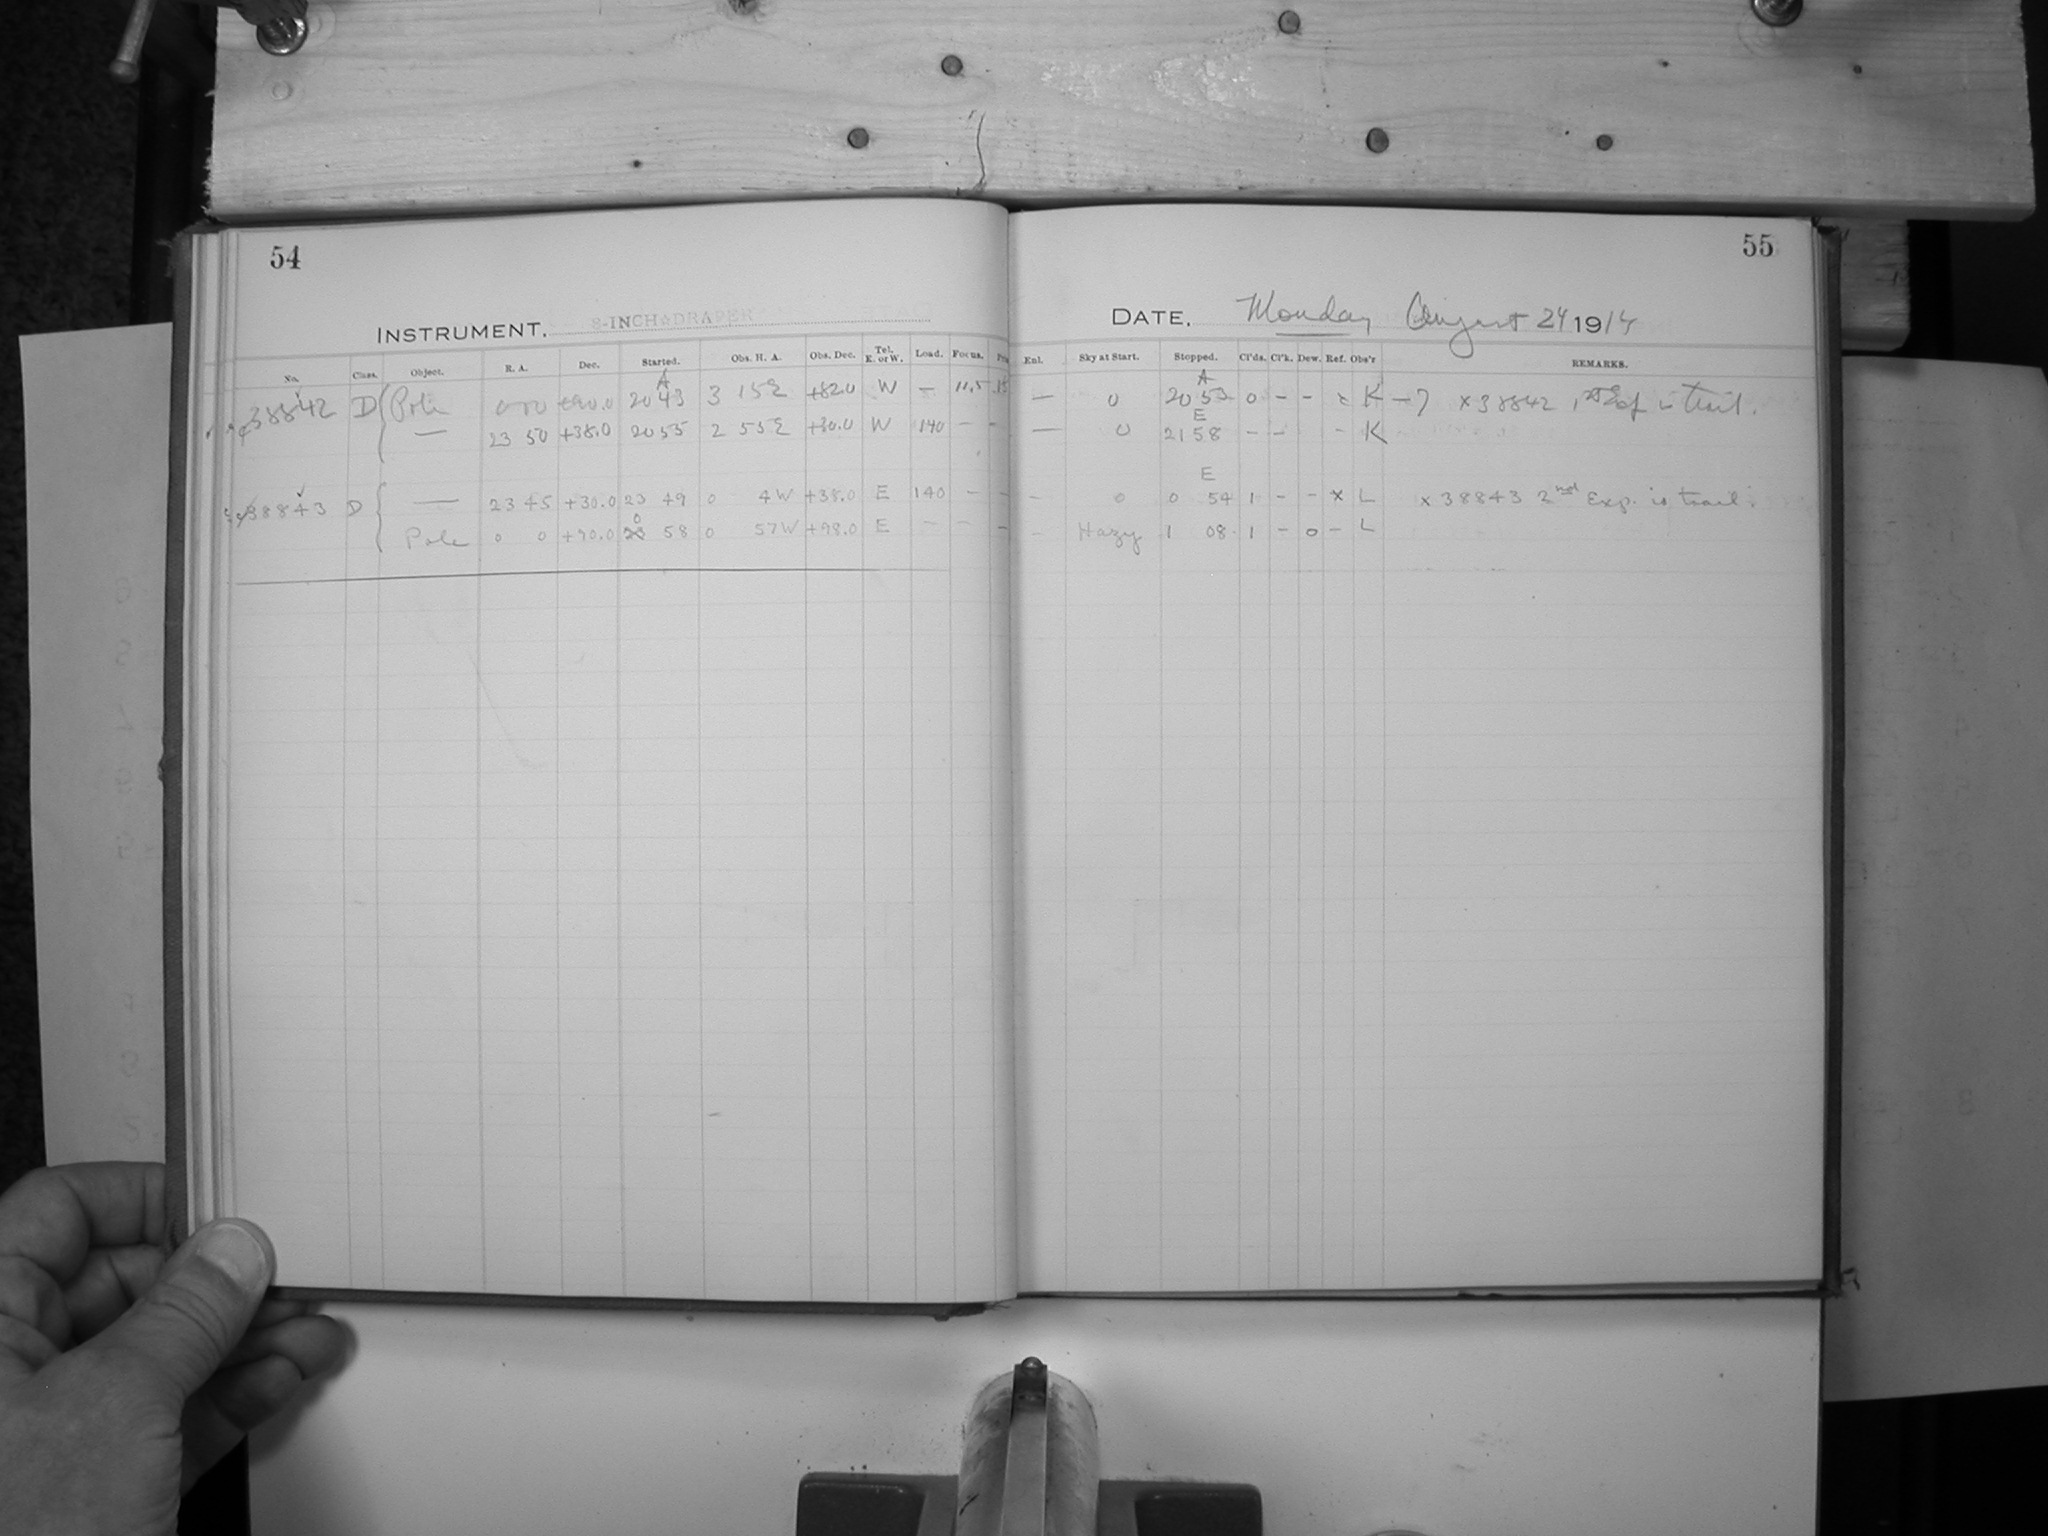 54
55
INSTRUMENT. 8-INCH DRAPER
DATE, Monday August 24 1914
No. Class. Object. R. A. Dec. Started. Obs. H. A. Obs. Dec. Tel. E. or W. Load. Focus. Enl. Sky at Start. Stopped. Cl'ds. Cl'k. Dew. Ref. Obs'r REMARKS.
A A
38842 D Pole +90.0 20 43 3 15 E +82.0 W – 11.5 — 0 20 53 0 - - x K x 38842 1st Exp is trail.
E
— 23 50 +38.0 20 55 2 55 E +30.0 W 140 - - — 0 21 58 - - - K
E
38843 D — 23 45 +30.0 23 49 0 4 W +38.0 E 140 - - - 0 0 54 1 - - x L x 38843 2nd Exp. is trail.
0
Pole 0 0 +90.0 58 0 57 W +98.0 E - - - - Hazy 1 08 1 - 0 - L